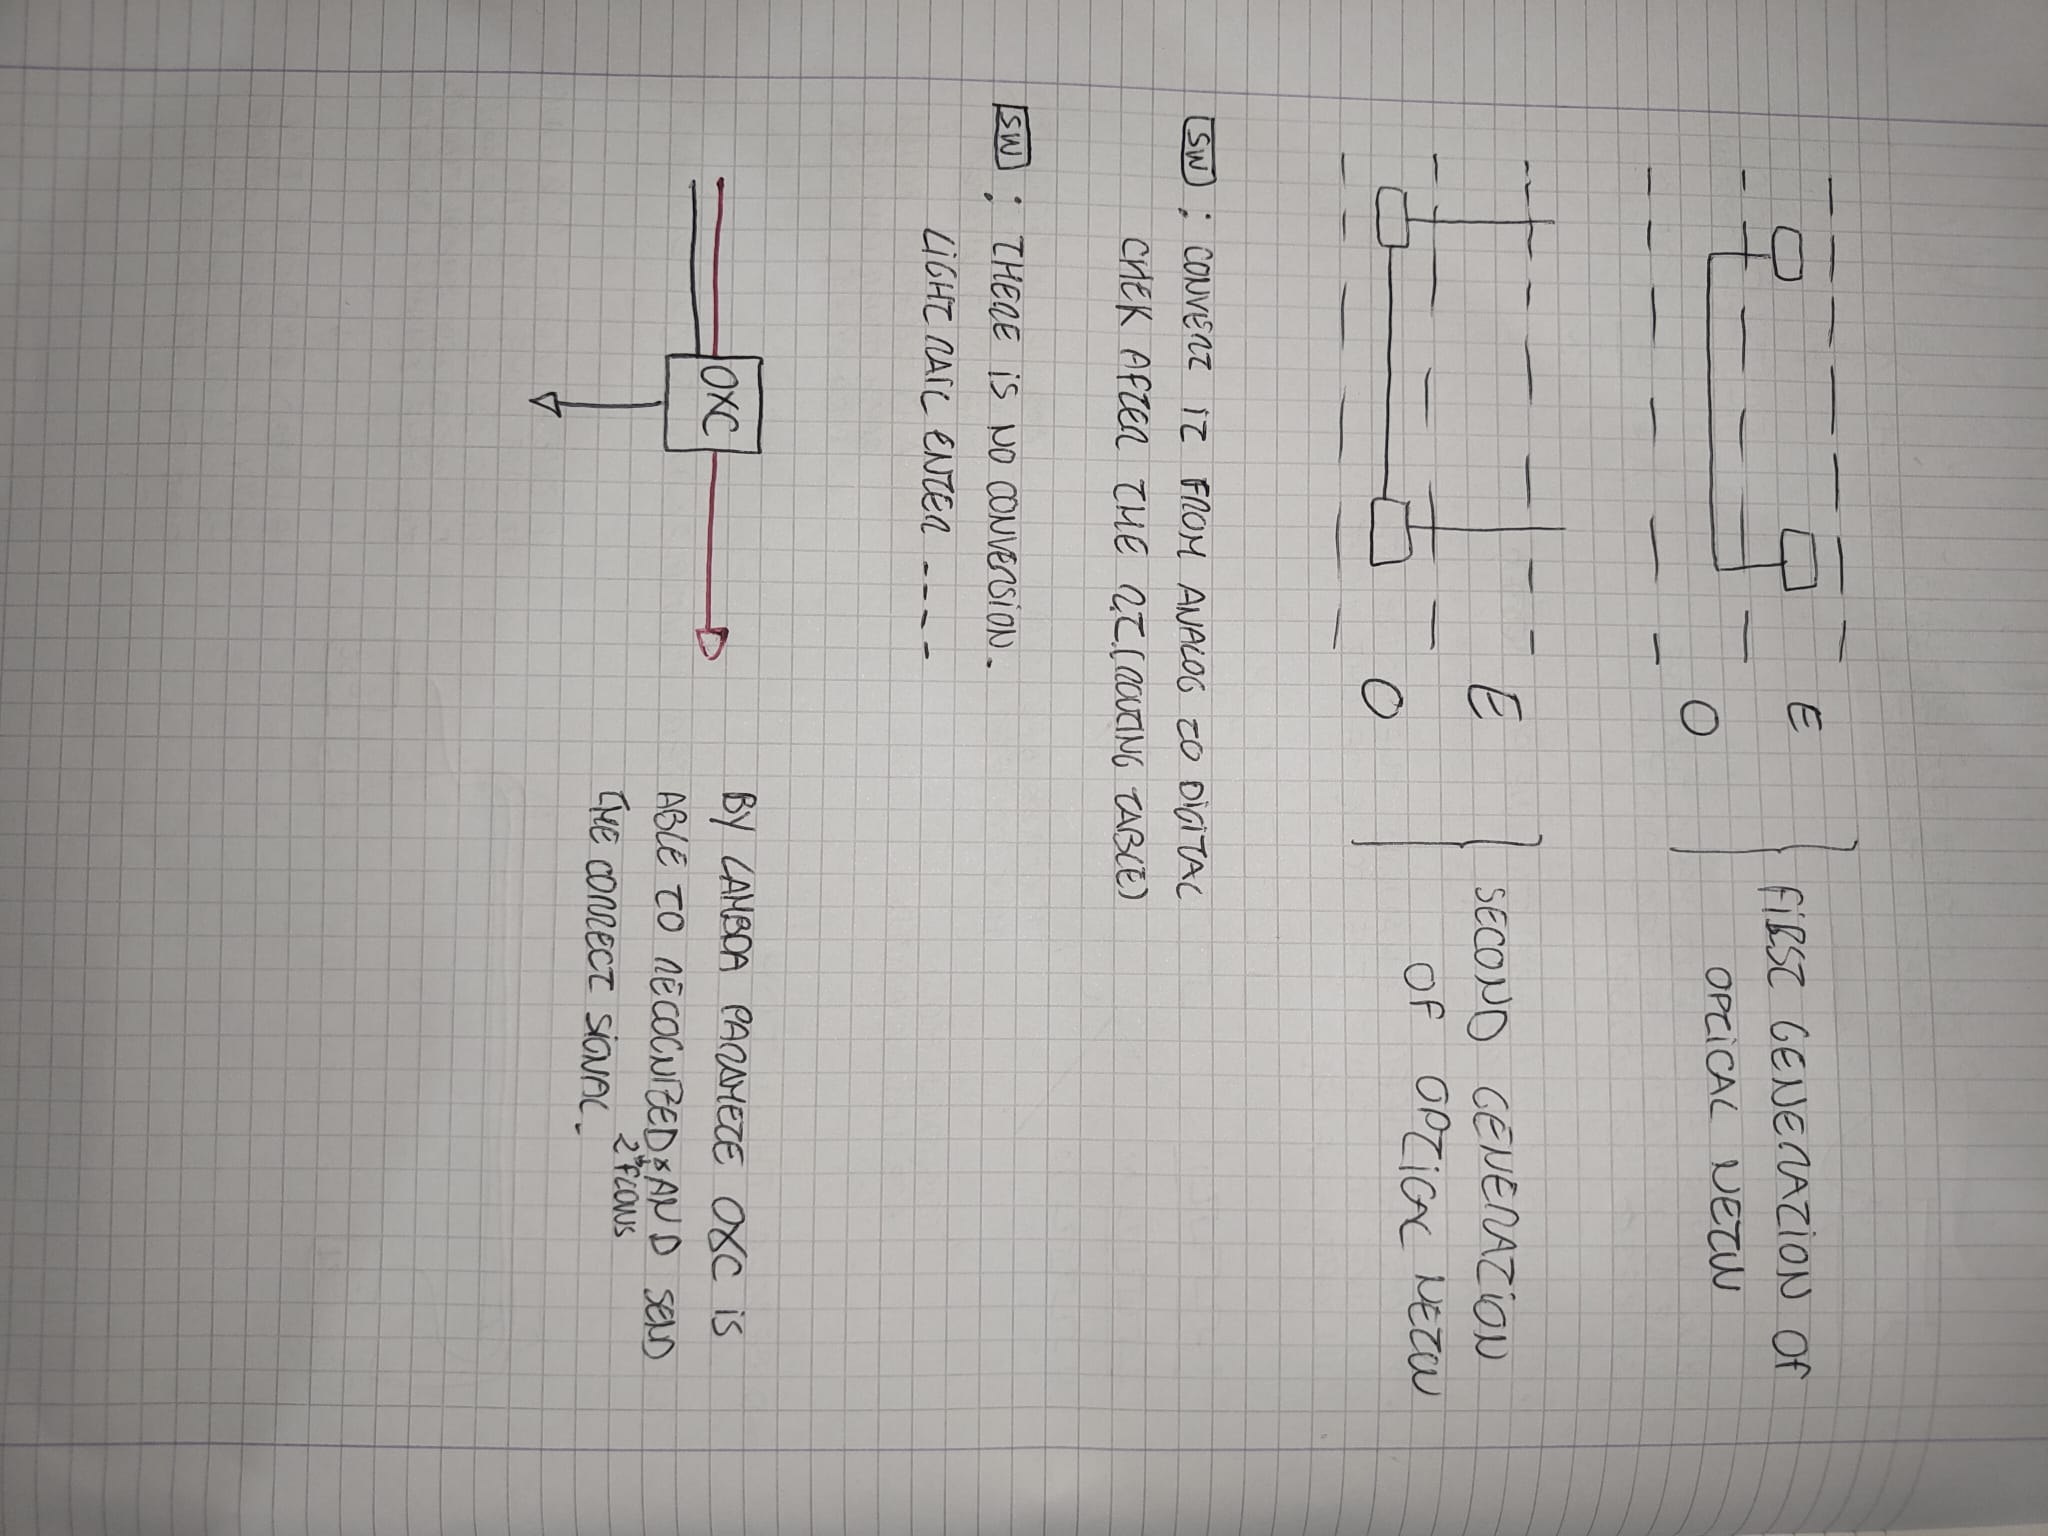 E
FIRST GENERATION OF
O
OPTICAL NETW
E
SECOND GENERATION
OF OPTICAL NETW
O
SW : CONVERT IT FROM ANALOG TO DIGITAL
CHEK AFTER THE R.T. (ROUTING TABLE)
SW : THERE IS NO CONVERSION.
LIGHT ENTER ----
OXC
BY LAMBDA PARAMETE OXC IS
ABLE TO RECOGNIZED AND SEND
2 FLOWS
THE CORRECT SIGNAL.